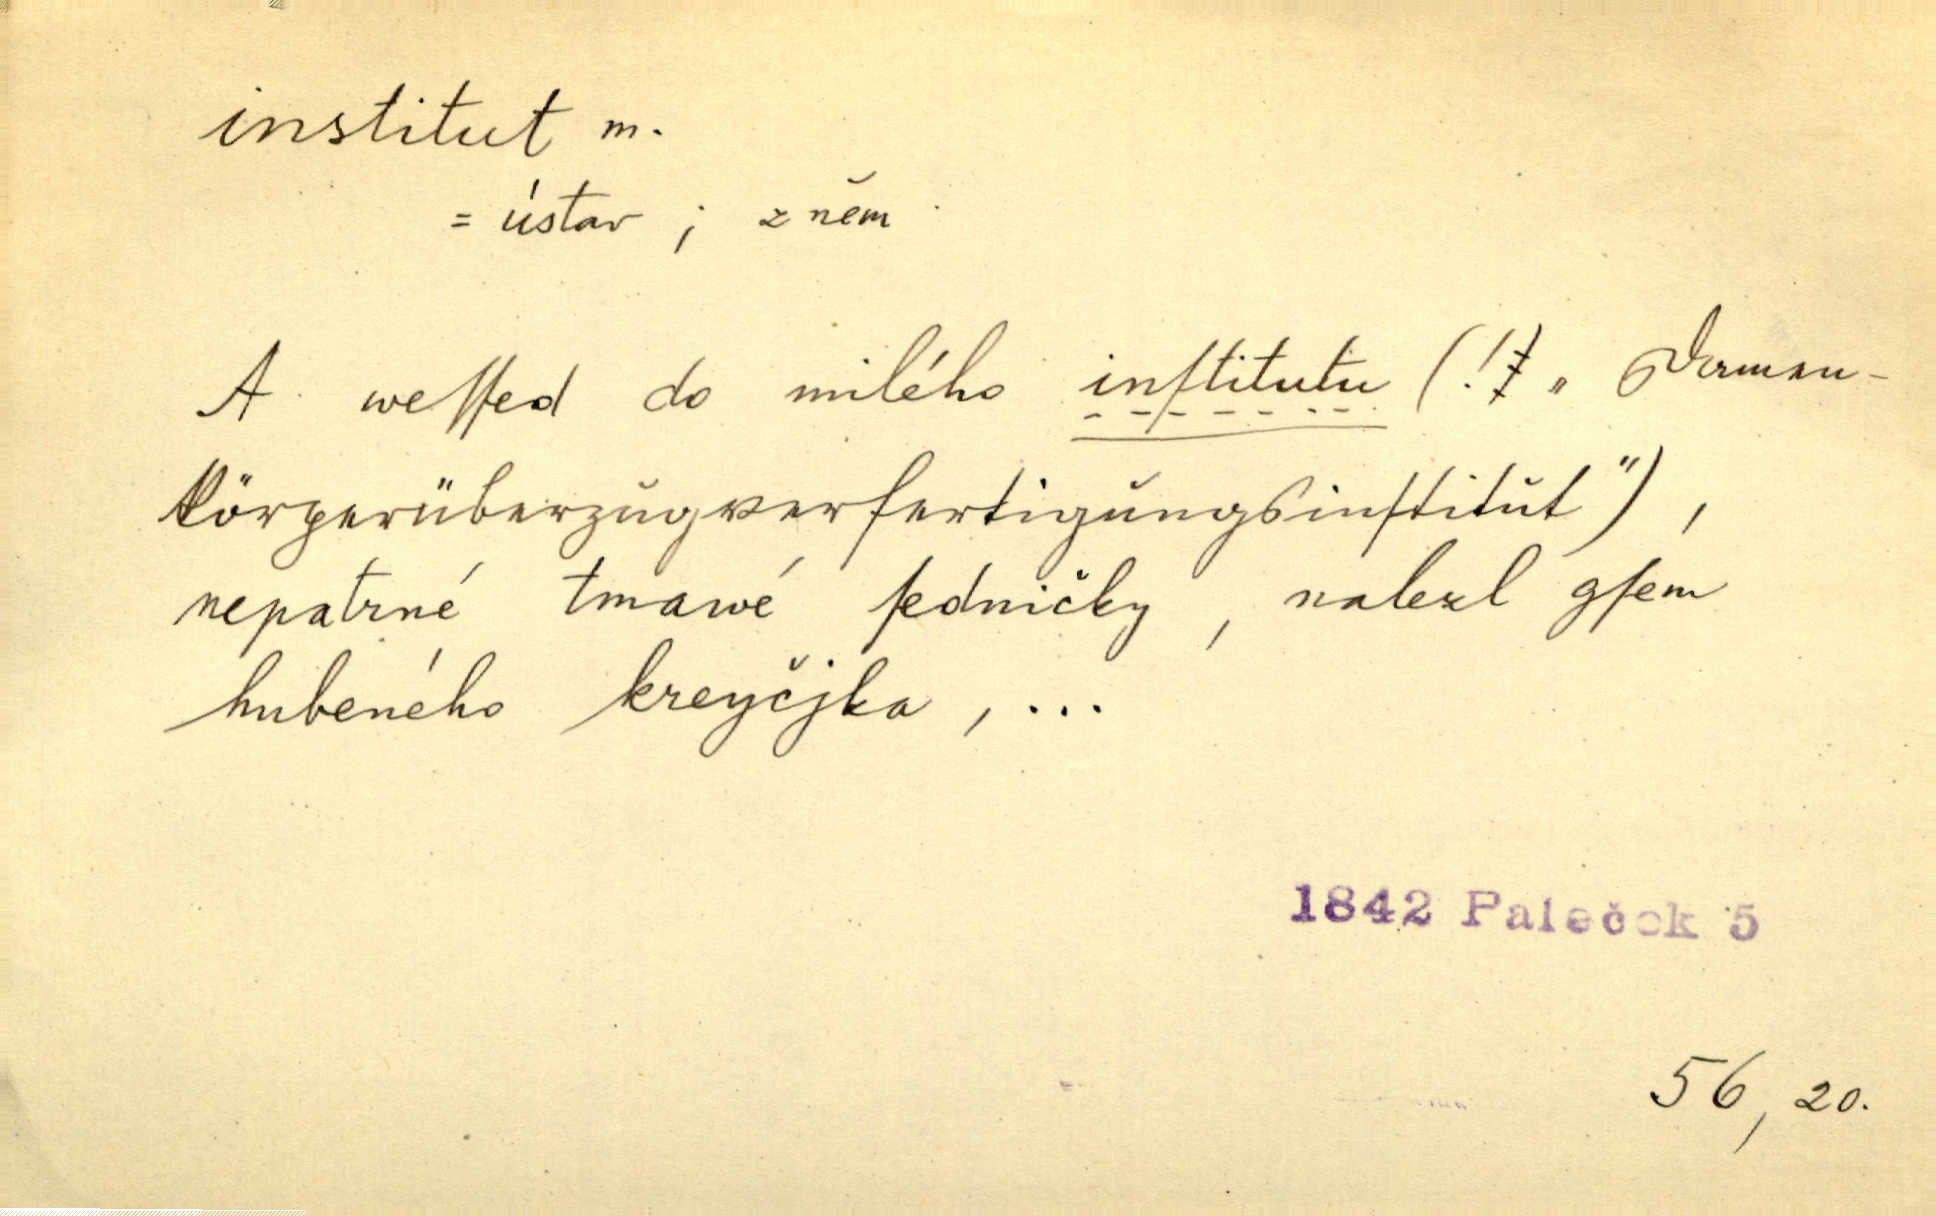 institut m.
= ústav ; z něm.
A weſſed do milého inſtitutu (! „Damen-
körperüberzugverfertigungsinſtitut"),
nepatrné tmawé ſedničky, nalezl gſem
hubeného kreyčjka, ...
1842 Paleček 5
56, 20.